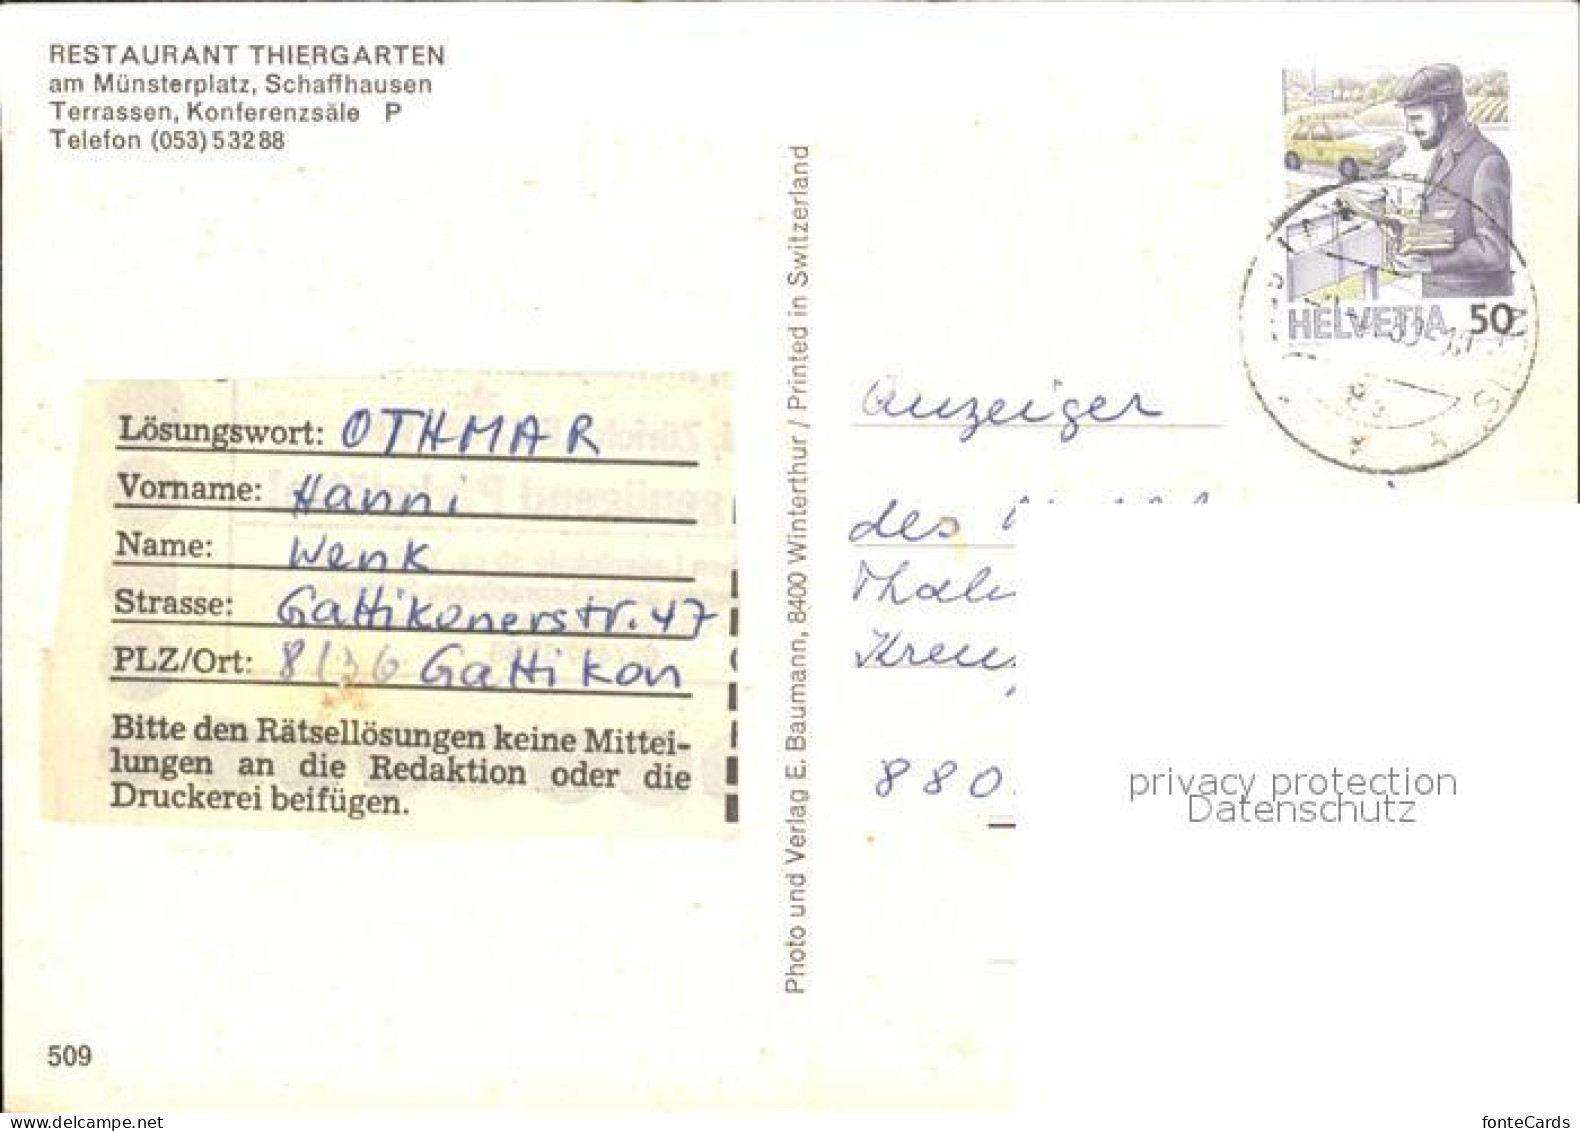 RESTAURANT THIERGARTEN
am Münsterplatz, Schaffhausen
Terrassen, Konferenzsäle P
Telefon (053) 5 32 88
HELVETIA 50
Lösungswort: OTHMAR
Vorname: Hanni
Name: Wenk
Strasse: Gattikonerstr. 47
PLZ/Ort: 8136 Gattikon
Bitte den Rätsellösungen keine Mittei-
lungen an die Redaktion oder die
Druckerei beifügen.
Photo und Verlag E. Baumann, 8400 Winterthur / Printed in Switzerland
Anzeiger
des
880
privacy protection
Datenschutz
509
fonteCards